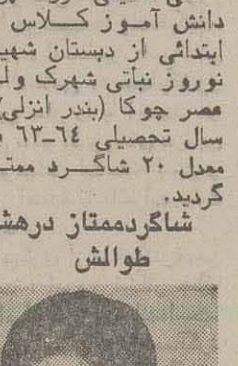 دانش آموز کــلاس
ابتدائی از دبستان شهید
نوروز نباتی شهرک ولـ
عصر چوکا (بندر انزلی)
سال تحصیلی ٦٤_٦٣
معدل ٢٠ شاگــرد ممتـ
گردید.
شاگردممتاز درهشـ
طوالش